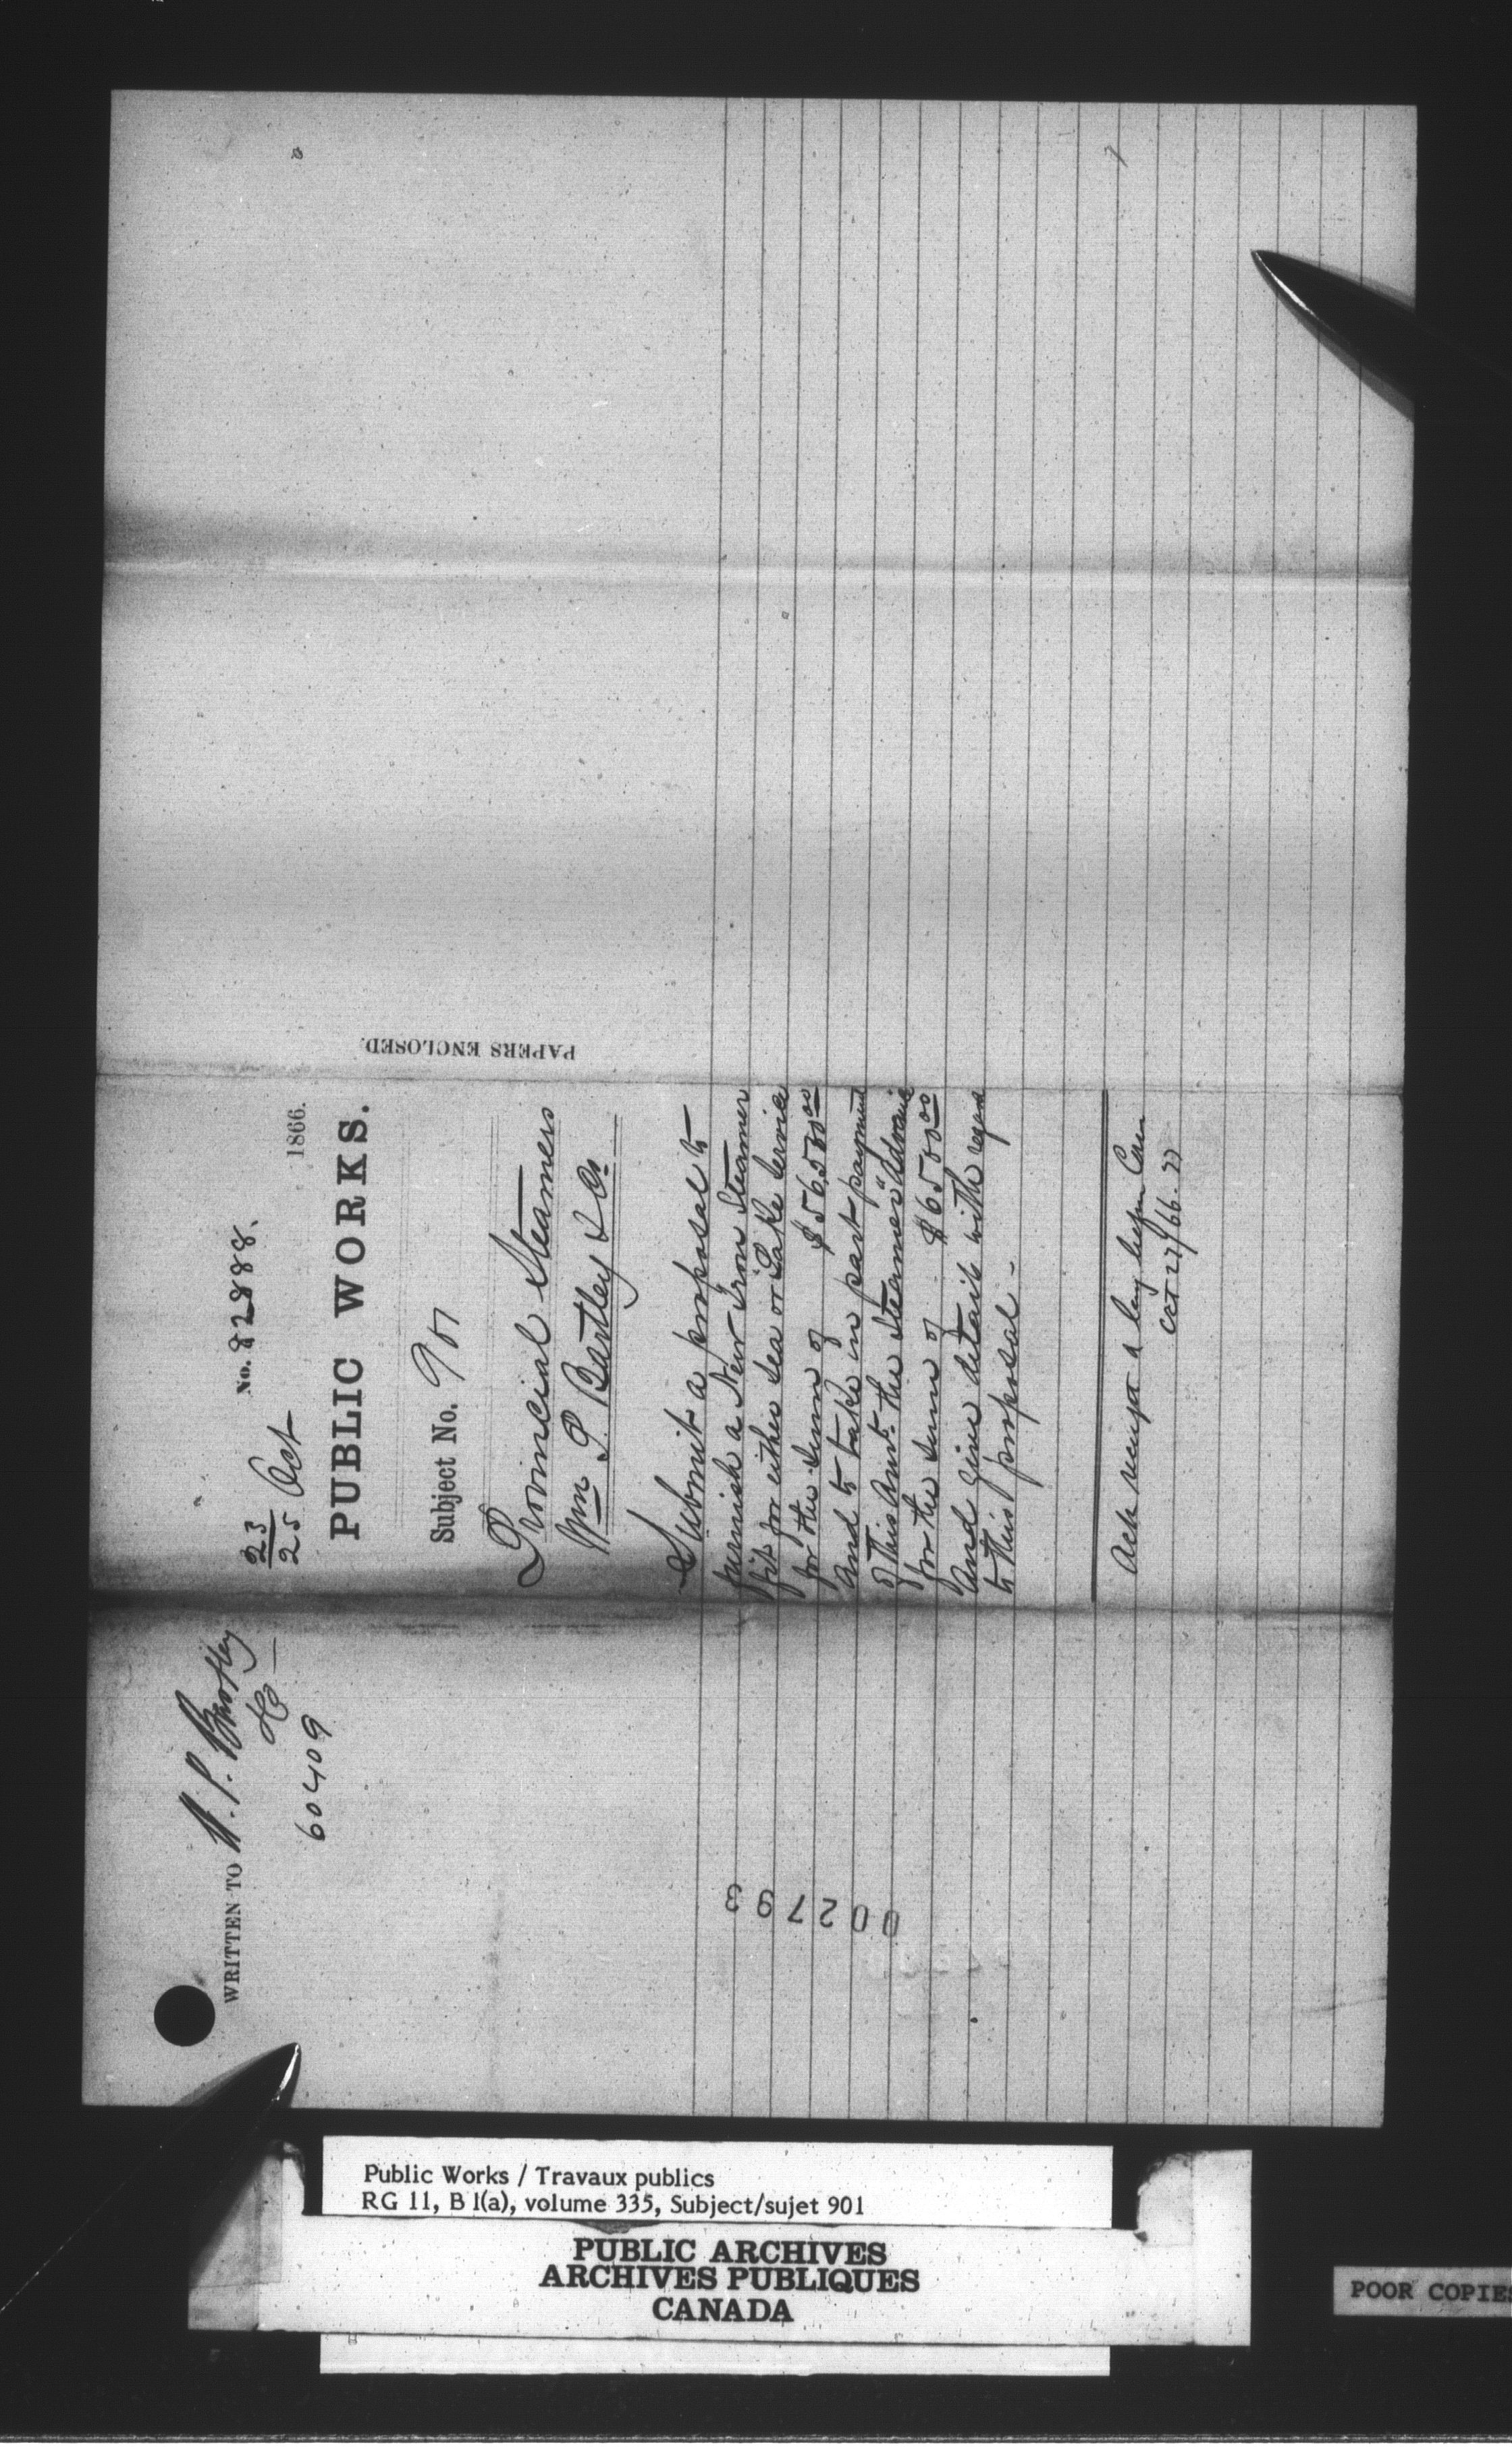 WRITTEN TO W. P. Bartley
& Co —
60409
No. 82888.
23/25 Oct 1866.
PUBLIC WORKS.
Subject No. 901
Provincial Steamers
Wm P. Bartley & Co
Submit a proposal to
furnish a New Iron Steamer
fit for either Sea or Lake Service
for the sum of $56,500.00
And to take in part payment
of this Amt. the Steamer "Advance
for the sum of $6500.00
And give details with regard
to this proposal -
Ack receipt & lay before Com
Oct 27/66.
PAPERS ENCLOSED.
002793
Public Works / Travaux publics
RG 11, B 1(a), volume 335, Subject/sujet 901
PUBLIC ARCHIVES
ARCHIVES PUBLIQUES
CANADA
POOR COPIES